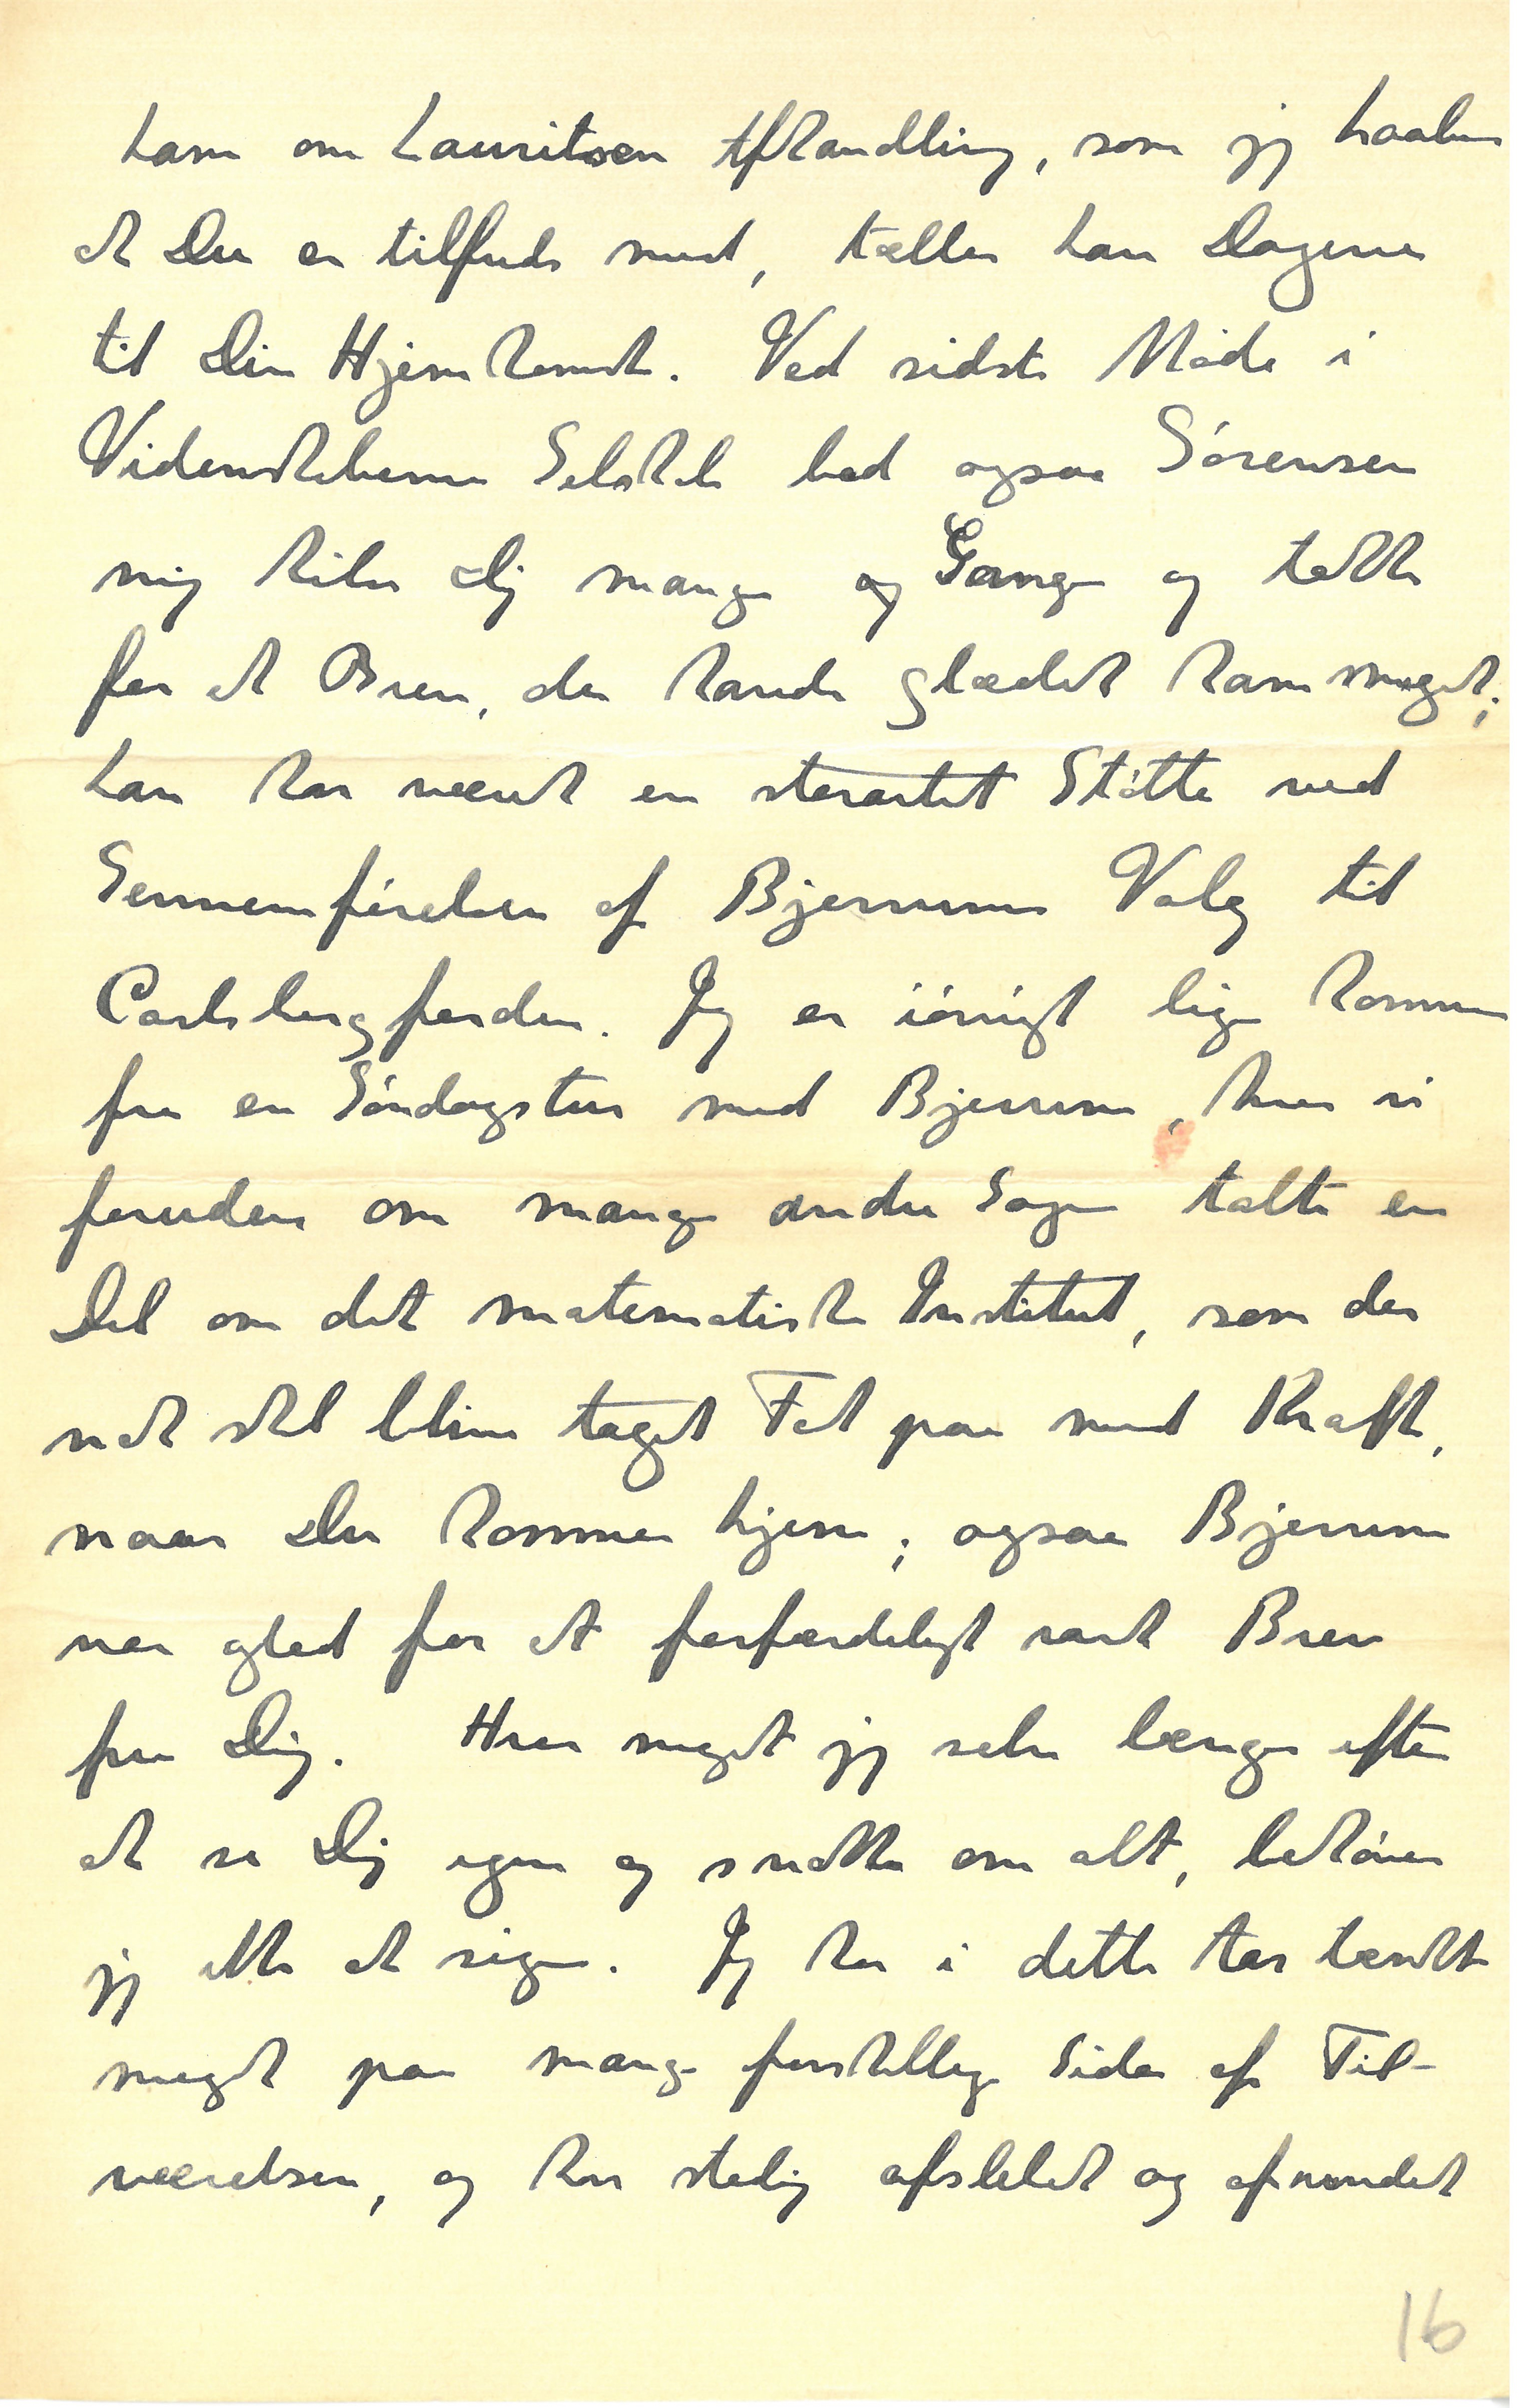 ham om Lauritsen Afhandling, som jeg haaber
at Du er tilfreds med, tæller han Dagene
til Din Hjemkomst. Ved sidste Møde i
Videnskabernes Selskab bad ogsaa Sørensen
mig hilse Dig mange og Gange og takke
for et Brev, der havde glædet ham meget;
han har været en storartet Støtte ved
Gennemførelsen af Bjerrums Valg til
Carlsbergfonden. Jeg er iøvrigt lige kommen
fra en Søndagstur med Bjerrum, hvor vi
foruden om mange andre Sager talte en
Del om det matematiske Institut, som der
nok skal blive taget Fat paa med Kraft,
naar Du kommer hjem; ogsaa Bjerrum
var glad for et forfærdeligt rart Brev
fra Dig. Hvor meget jeg selv længes efter
at se Dig igen og snakke om alt, behøver
jeg ikke at sige. Jeg har i dette Aar tænkt
meget paa mange forskellige Sider af Til-
værelsen, og har stadig afslebet og afrundet
16